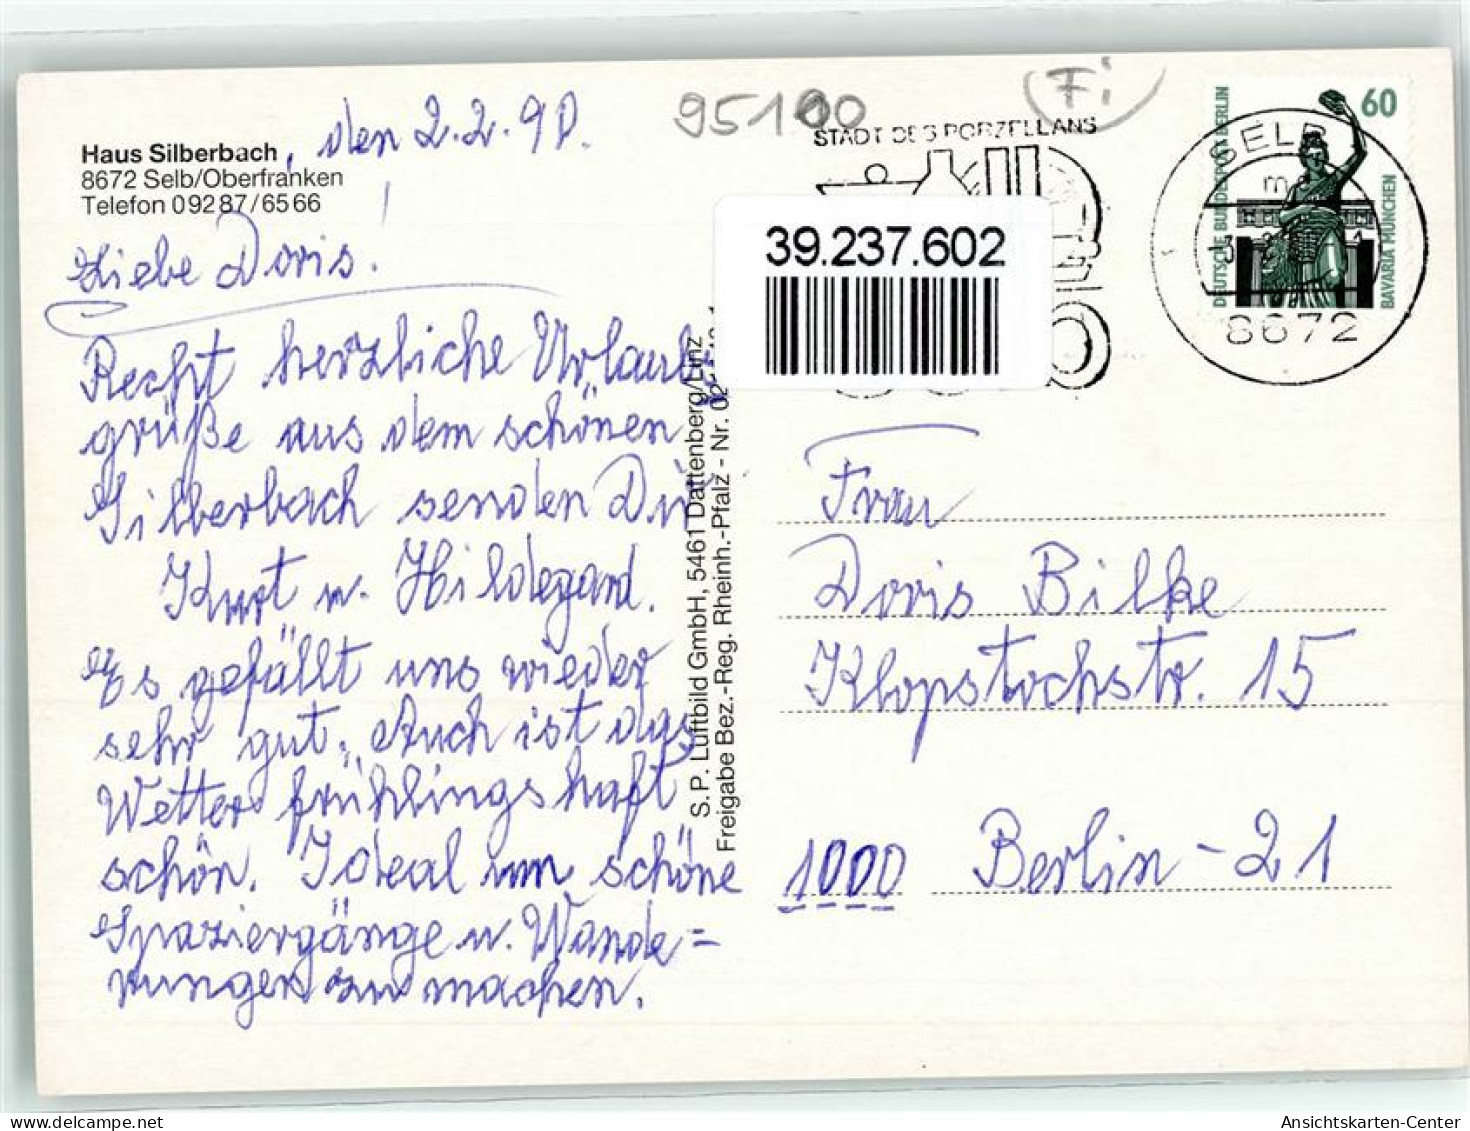 Haus Silberbach, den 2.2.90.
8672 Selb/Oberfranken
Telefon 09287/6566
Liebe Doris!
Recht herzliche Urlaubs
grüße aus dem schönen
Silberbach senden Dir
Kurt u. Hildegard.
Es gefällt uns wieder
sehr gut. Auch ist das
Wetter frühlingshaft
schön. Ideal um schöne
Spaziergänge u. Wande=
rungen zu machen.
S.P. Luftbild GmbH, 5461 Dattenberg/Linz
Freigabe Bez.-Reg. Rheinh.-Pfalz - Nr.
95100
Fi
STADT DES PORZELLANS
39.237.602
SELB
8672
60
DEUTSCHE BUNDESPOST BERLIN
BAVARIA MÜNCHEN
Frau
Doris Bilke
Klopstockstr. 15
1000 Berlin-21
Ansichtskarten-Center